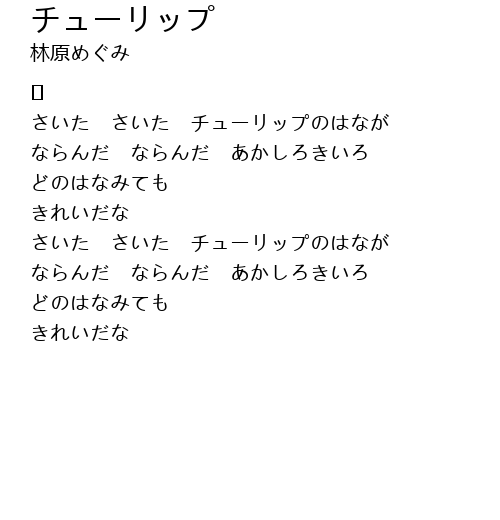 チューリップ
林原めぐみ
さいた　さいた　チューリップのはなが
ならんだ　ならんだ　あかしろきいろ
どのはなみても
きれいだな
さいた　さいた　チューリップのはなが
ならんだ　ならんだ　あかしろきいろ
どのはなみても
きれいだな